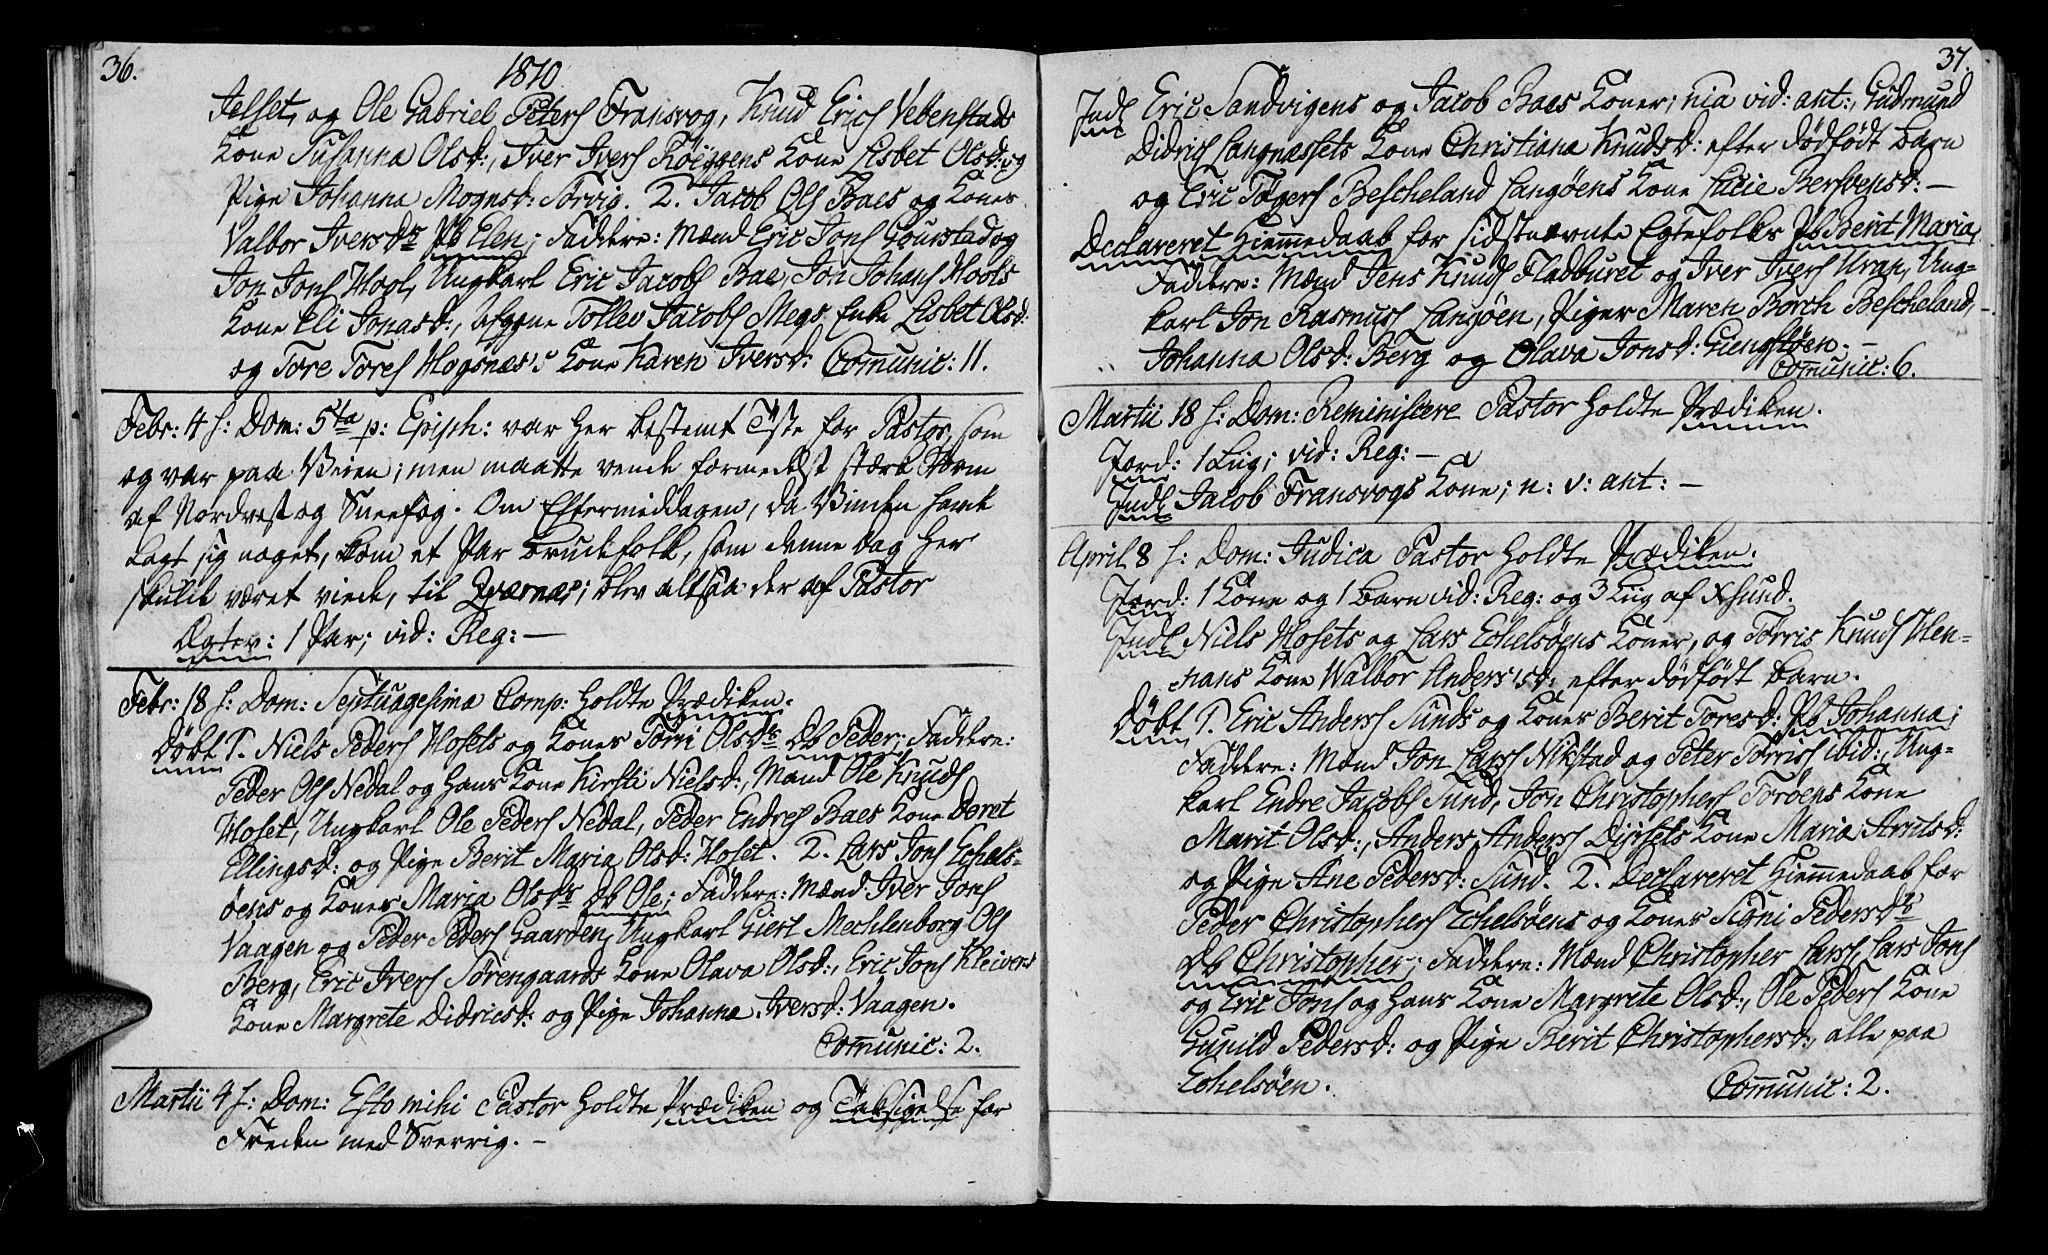 36.
1810
Jelset, og Ole Gabriel Peters Fransvog, Knud Erics Vebenstads
Kone Susanna Olsd:, Iver Ivers Röeggens Kone Lisbet Olsd: og
Pige Johanna Mognsd: Torvig. 2. Jacob Ols Baes og Kones
Valbor Iversdr PB Elen; Faddere: Mænd Eric Jons Gourstad og
Jon Jons Hool, Ungkarl Eric Jacobs Bae, Jon Johans Hools
Kone Eli Jonasd:, Afgne Tollev Jacobs Megs Enke Lisbet Olsd:
og Tore Tores Hogsnæs's Kone Karen Iversd: Comunic: 11.
Febr: 4 s: Dom: 5ta p: Epiph: var her bestemt Tiste for Pastor, som
og var paa Veien; men maatte vende formedelst stærk Storm
af Nordvest og Sneefog. Om Eftermiddagen, da Vinden havde
lagt sig noget, kom et Par Brudefolk, som denne Dag her
skulde været viede, til Qværnæs; blev altsaa der af Pastor
Ægtev: 1 Par; vid: Reg: —
Febr: 18 s: Dom: Septuagesima Comp: holdte Prædiken.
Döbt 1. Niels Peders Hosets og Kones Torri Olsdrs DB Peder; Faddere:
Peder Ols Nedal og hans Kone Kirsti Nielsd:, Mand Ole Knuds
Hoset, Ungkarl Ole Peders Nedal, Peder Endres Baes Kone Deret
Ellingsd: og Pige Berit Maria Olsd: Hoset. 2. Lars Jons Echels-
öens og Kones Maria Olsdrs DB Ole; Faddere: Mænd Iver Jons
Vaagen og Peder Peders Gaarden, Ungkarl Giert Mechlenborg Ols
Berg, Eric Ivers Sörengaards Kone Olava Olsd:, Eric Jons Kleivens
Kone Margrete Didricsd: og Pige Johanna Iversd: Vaagen.
Comunic: 2.
Martii 4 s: Dom: Esto mihi Pastor holdte Prædiken og Taksigelse for
Freden med Sverrig. —
37.
Indl Eric Sandvigens og Jacob Baes Koner; nia vid: ant:, Gudmund
Didrics Langnæssets Kone Christiana Knudsd: efter dödfödt Barn
og Eric Tögers Bescheland Langöens Kone Lucie Bersvensd: —
Declareret Hiemmedaab for sidstnævnte Egtefolks PB Berit Maria,
Faddere: Mænd Jens Knuds Fladburet og Iver Ivers Uran, Ung-
karl Jon Rasmuss Langöen, Piger Maren Borch Bescheland,
Johanna Olsd: Berg og Olava Jonsd: Giengstöen. —
Comunic: 6.
Martii 18 s: Dom: Reminiscere Pastor holdte Prædiken.
Jord: 1 Liig; vid: Reg: —
Indl Jacob Fransvogs Kone; n: v: ant: —
April 8 s: Dom: Judica Pastor holdte Prædiken.
Jord: 1 Kone og 1 Barn vid: Reg: og 3 Liig af Xsund.
Indl Niels Hosets og Lars Echelsöens Koner, og Torris Knuds Hen-
hans Kone Walbor Andersisd: efter dödfödt Barn.
Döbt 1. Eric Anderss Sunds og Kones Berit Toresd: PB Johanna;
Faddere: Mænd Jon Larss Nikstad og Peter Torriss ibid:, Ung-
karl Endre Jacobs Sund, Jon Christophers Toröens Kone
Marit Olsd:, Anders Anderss Dijsets Kone Maria Arntsd:
og Pige Ane Pedersd: Sund. 2. Declareret Hiemmedaab for
Peder Christophers Echelsöens og Kones Signi Pedersdrs
DB Christopher; Faddere: Mænd Christopher Larss, Lars Jons
og Eric Jons og hans Kone Margrete Olsd:, Ole Peders Kone
Gunild Pedersd: og Pige Berit Christophersd:, alle paa
Echelsöen. Comunic: 2.